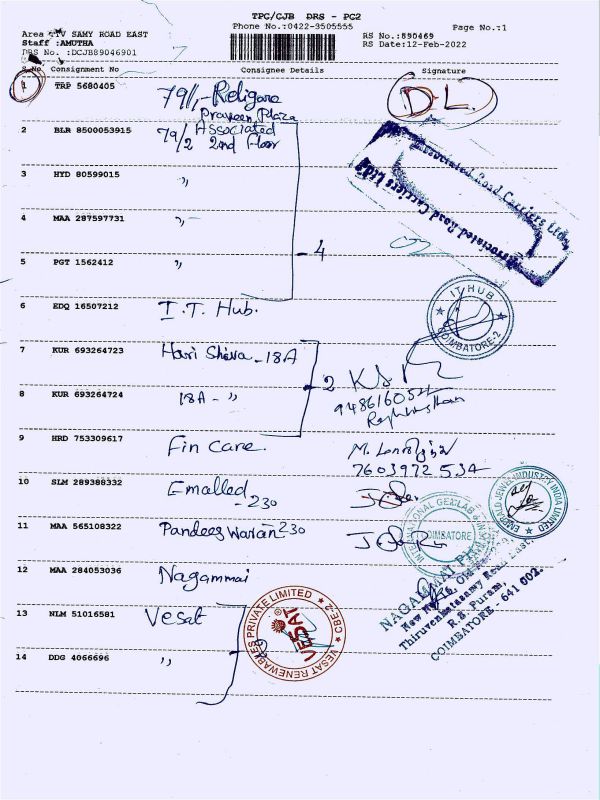 TPC/CJB DRS - PC2
Phone No.:0422-3505555
Page No.:1
Area :TV SAMY ROAD EAST
Staff :AMUTHA
DRS No. :DCJB89046901
RS No.:890469
RS Date:12-Feb-2022
S.No Consignment No Consignee Details Signature
1 TRP 5680405 79/1,-Religare
Praveen Plaza
D.L.
2 BLR 8500053915 79/2 Associated
2nd Floor
Associated Road Carriers Ltd.
Associated Road Carriers Ltd.
3 HYD 80599015 ,,
4 MAA 287597731 ,,-
- 4
5 PGT 1562412 ,,
6 EDQ 16507212 I.T. Hub.
IT HUB
COIMBATORE-2
7 KUR 693264723 Hari Shiva - 18A
- 2
8 KUR 693264724 18A - ,,
9 HRD 753309617 Fin Care.
7603972534
10 SLM 289388332 Emalled
- 230
INTERNATIONAL GEM LAB
COIMBATORE
EMERALD JEWEL INDUSTRY INDIA LIMITED
11 MAA 565108322 Pandeeswaran 230
12 MAA 284053036 Nagammai
NAGAMMAI
Thiruvenkatasamy Road East,
R.S. Puram,
COIMBATORE - 641 002.
13 NLM 51016581 Vesat
VESAT RENEWABLES PRIVATE LIMITED
CBE-2
VESAT
14 DDG 4066696 ,,